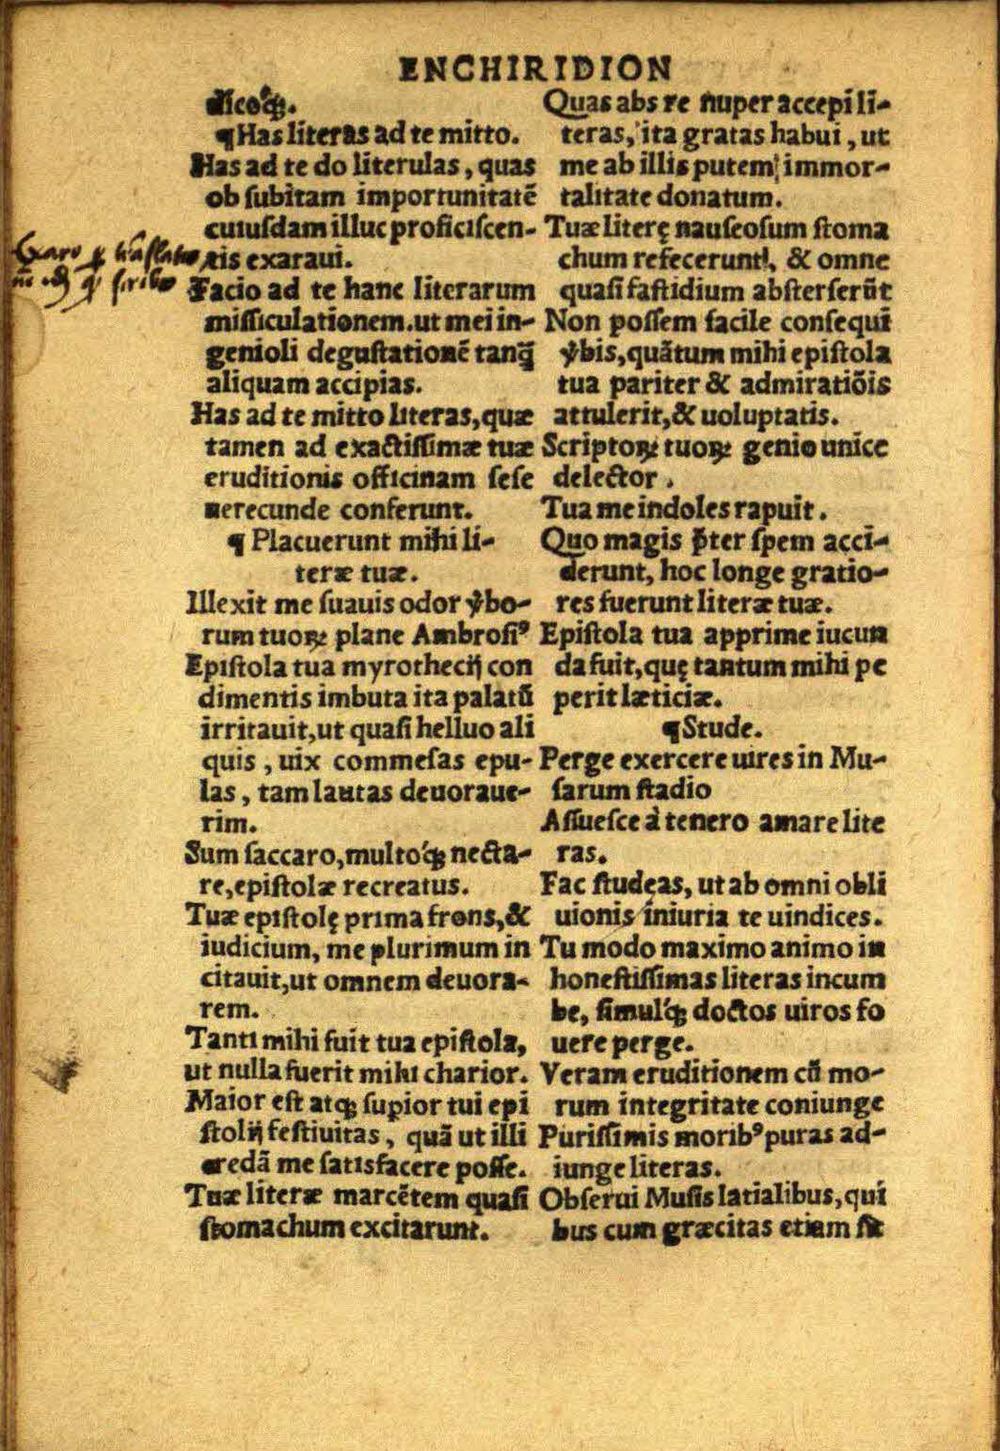 ENCHIRIDION
dicoꝗ́;.
¶Has literas ad te mitto.
Has ad te do literulas, quas
ob ſubitam importunitatē
cuiuſdam illuc proficiſcen-
tis exaraui.
Facio ad te hanc literarum
miſſiculationem.ut mei in-
genioli deguſtationē tanq̄
aliquam accipias.
Has ad te mitto literas,quæ
tamen ad exactiſſimæ tuæ
eruditionis officinam ſeſe
uerecunde conferunt.
¶ Placuerunt mihi li-
teræ tuæ.
Illexit me ſuauis odor v̓bo-
rum tuoꝝ plane Ambroſiꝰ
Epiſtola tua myrothecij con
dimentis imbuta ita palatū
irritauit,ut quaſi helluo ali
quis , uix commeſas epu-
las , tam lautas deuoraue-
rim.
Sum ſaccaro,multoꝗ́; necta-
re,epiſtolæ recreatus.
Tuæ epiſtolę prima frons,&
iudicium, me plurimum in
citauit,ut omnem deuora-
rem.
Tanti mihi fuit tua epiſtola,
ut nulla fuerit mihi charior.
Maior eſt atꝗ; ſupior tui epi
ſtolij feſtiuitas , quā ut illi
credā me ſatisfacere poſſe.
Tuæ literæ marcētem quaſi
ſtomachum excitarunt.
Quas abs te nuper accepi li-
teras, ita gratas habui , ut
me ab illis putem immor-
talitate donatum.
Tuæ literę nauſeoſum ſtoma
chum refecerunt, & omne
quaſi faſtidium abſterſerūt
Non poſſem facile conſequi
v̓bis,quātum mihi epiſtola
tua pariter & admiratiōis
attulerit,& uoluptatis.
Scriptoꝝ tuoꝝ genio unice
delector .
Tua me indoles rapuit .
Quo magis p̄ter ſpem acci-
derunt, hoc longe gratio-
res fuerunt literæ tuæ.
Epiſtola tua apprime iucun
da fuit,quę tantum mihi pe
perit læticiæ.
¶Stude.
Perge exercere uires in Mu-
ſarum ſtadio
Aſſueſce à tenero amare lite
ras.
Fac ſtudeas, ut ab omni obli
uionis iniuria te uindices.
Tu modo maximo animo in
honeſtiſſimas literas incum
be, ſimulꝗ́; doctos uiros fo
uere perge.
Veram eruditionem cū mo-
rum integritate coniunge
Puriſſimis moribꝰ puras ad-
iunge literas.
Obſerui Muſis latialibus,qui
bus cum græcitas etiam ſit